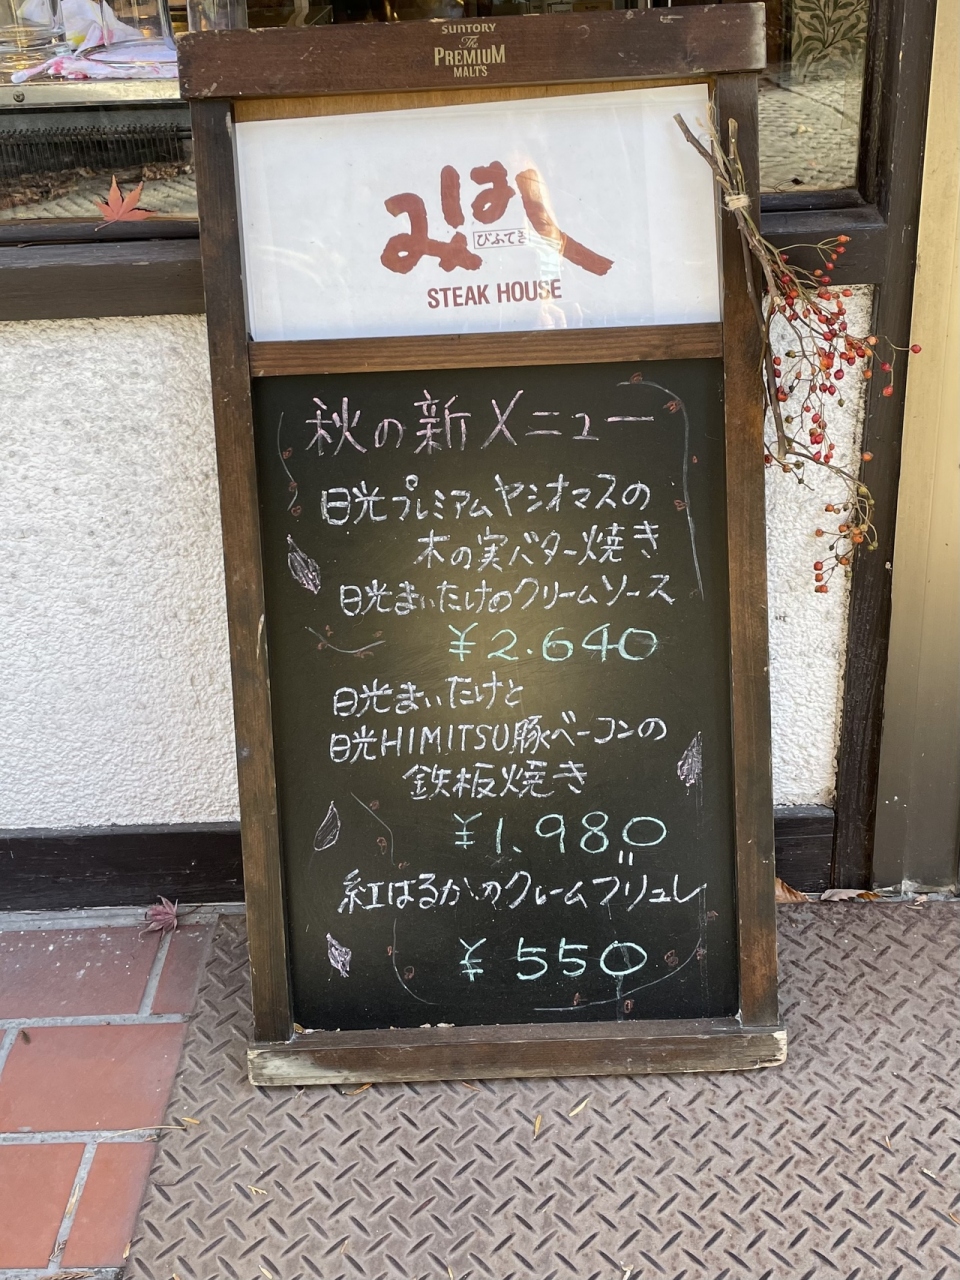 SUNTORY
The
PREMIUM
MALT'S
みはし
びふてき
STEAK HOUSE
秋の新メニュー
日光プレミアムヤシオマスの
木の実バター焼き
日光まいたけのクリームソース
¥2.640
日光まいたけと
日光HIMITSU豚ベーコンの
鉄板焼き
¥1.980
紅はるかのクレームブリュレ
¥550